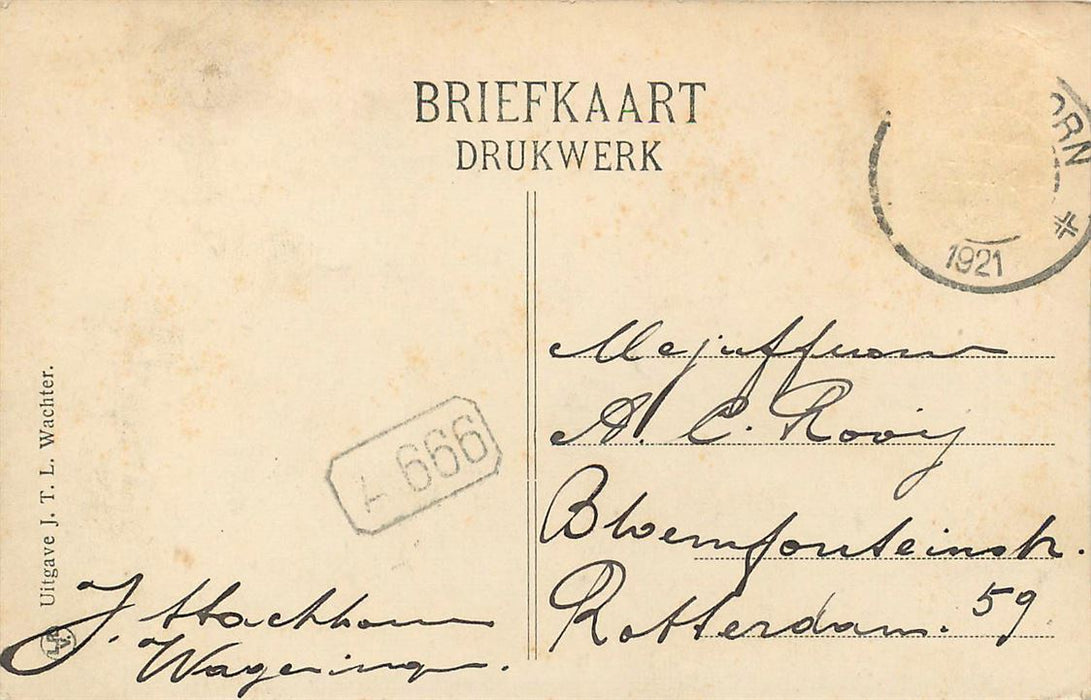 BRIEFKAART
DRUKWERK
ORN
1921
Mejuffrouw
A. C. Rooij
Bloemfonteinstr.
59
Rotterdam.
A 666
Uitgave J. T. L. Wachter.
J.
Wageningen.